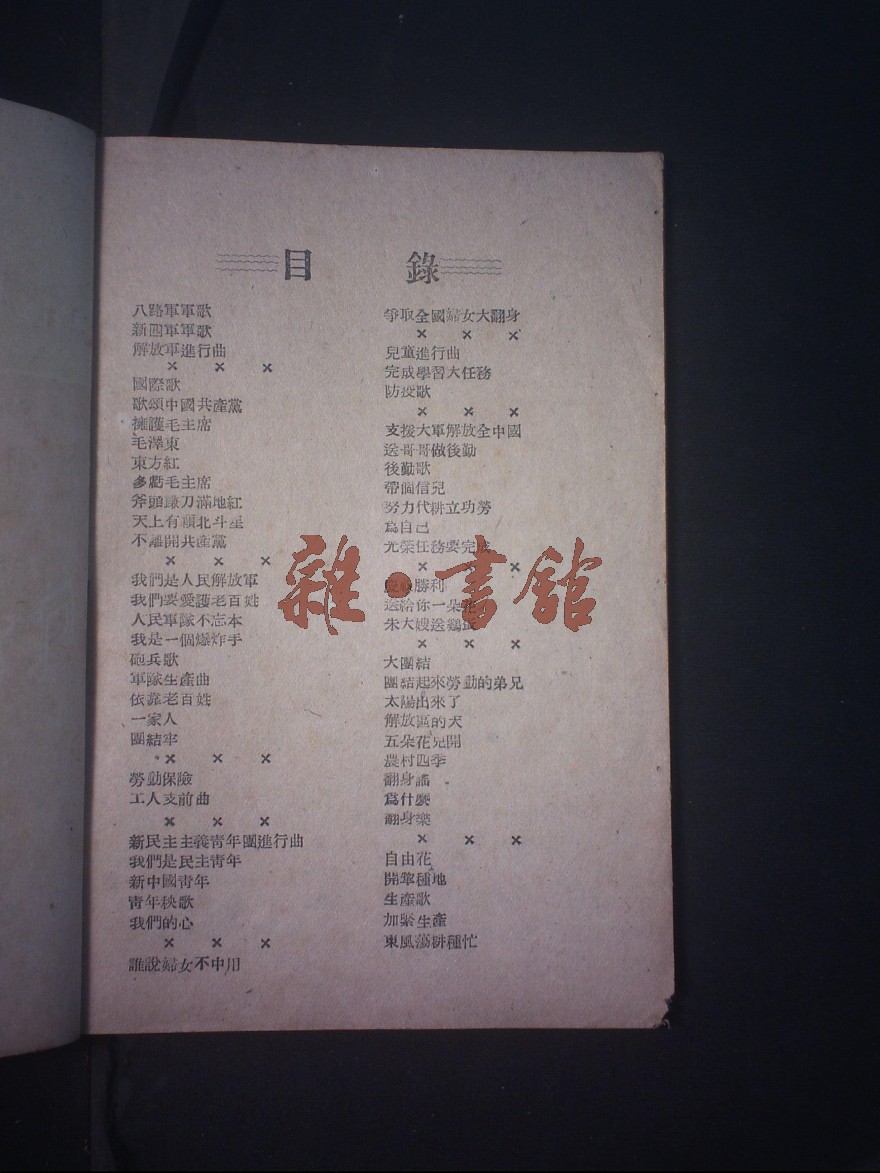 目 錄
八路軍軍歌
新四軍軍歌
解放軍進行曲
× × ×
國際歌
歌頌中國共產黨
擁護毛主席
毛澤東
東方紅
多虧毛主席
斧頭鐮刀滿地紅
天上有顆北斗星
不離開共產黨
× × ×
我們是人民解放軍
我們要愛護老百姓
人民軍隊不忘本
我是一個爆炸手
砲兵歌
軍隊生產曲
依靠老百姓
一家人
團結牢
× × ×
勞動保險
工人支前曲
× × ×
新民主主義青年團進行曲
我們是民主青年
新中國青年
青年秧歌
我們的心
× × ×
誰說婦女不中用
爭取全國婦女大翻身
× × ×
兒童進行曲
完成學習大任務
防疫歌
× × ×
支援大軍解放全中國
送哥哥做後勤
後勤歌
帶個信兒
努力代耕立功勞
爲自己
光榮任務要完成
× × ×
慶祝勝利
送給你一朵花
朱大嫂送鷄蛋
× × ×
大團結
團結起來勞動的弟兄
太陽出來了
解放區的天
五朵花兒開
農村四季
翻身謠
爲什麼
翻身樂
× × ×
自由花
開犂種地
生產歌
加緊生產
東風蕩耕種忙
雜·書館